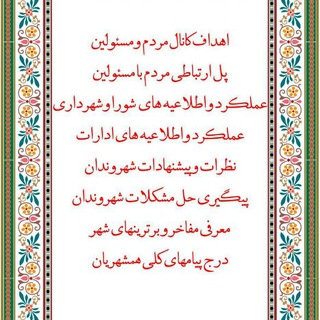 اهداف کانال مردم و مسئولین
پل ارتباطی مردم با مسئولین
عملکرد و اطلاعیه های شورا و شهرداری
عملکرد و اطلاعیه های ادارات
نظرات و پیشنهادات شهروندان
پیگیری حل مشکلات شهروندان
معرفی مفاخر و برترینهای شهر
درج پیامهای کلی همشهریان